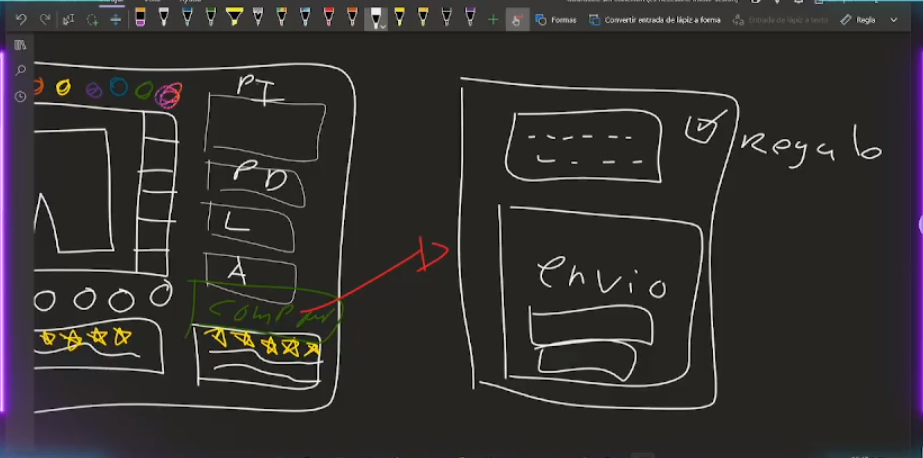 Formas
Convertir entrada de lápiz a forma
Entrada de lápiz a texto
Regla
PI
PD
L
A
Regalo
envio